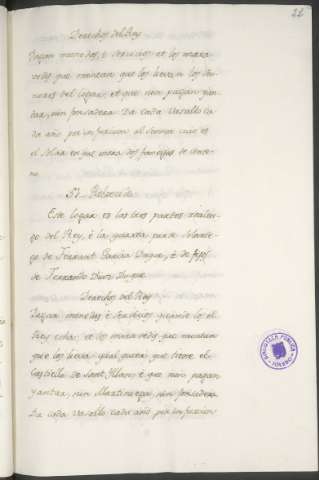 22
Derechos del Rey
Pagan monedas, è servicios et los mara-
vedis que montan que los lieva los Se-
nores del logar, et que non pagan yan-
tar, nin fonsadera. Da cada Vasallo ca-
da año por infurcion al Señor cuio es
el Solar en que mora dos fanegas de cente-
no.
Este logar es las tres partes realen-
go del Rey, è la quarta parte Abaden-
go de Ferrant Garcia Duque, è de fijos
de Ferrando Duque.
Derechos del Rey
Pagan monedas è servicios quando los el
Rey echa, et los maravedis que montan
que los lieva qual quiera que tiene el
Castiello de Sant Illan; è que non pagan
yantar, nin Martiniega, nin fonsadera.
Da cada Vasallo cada año por infurcion
BIBLIOTECA PUBLICA
TOLEDO